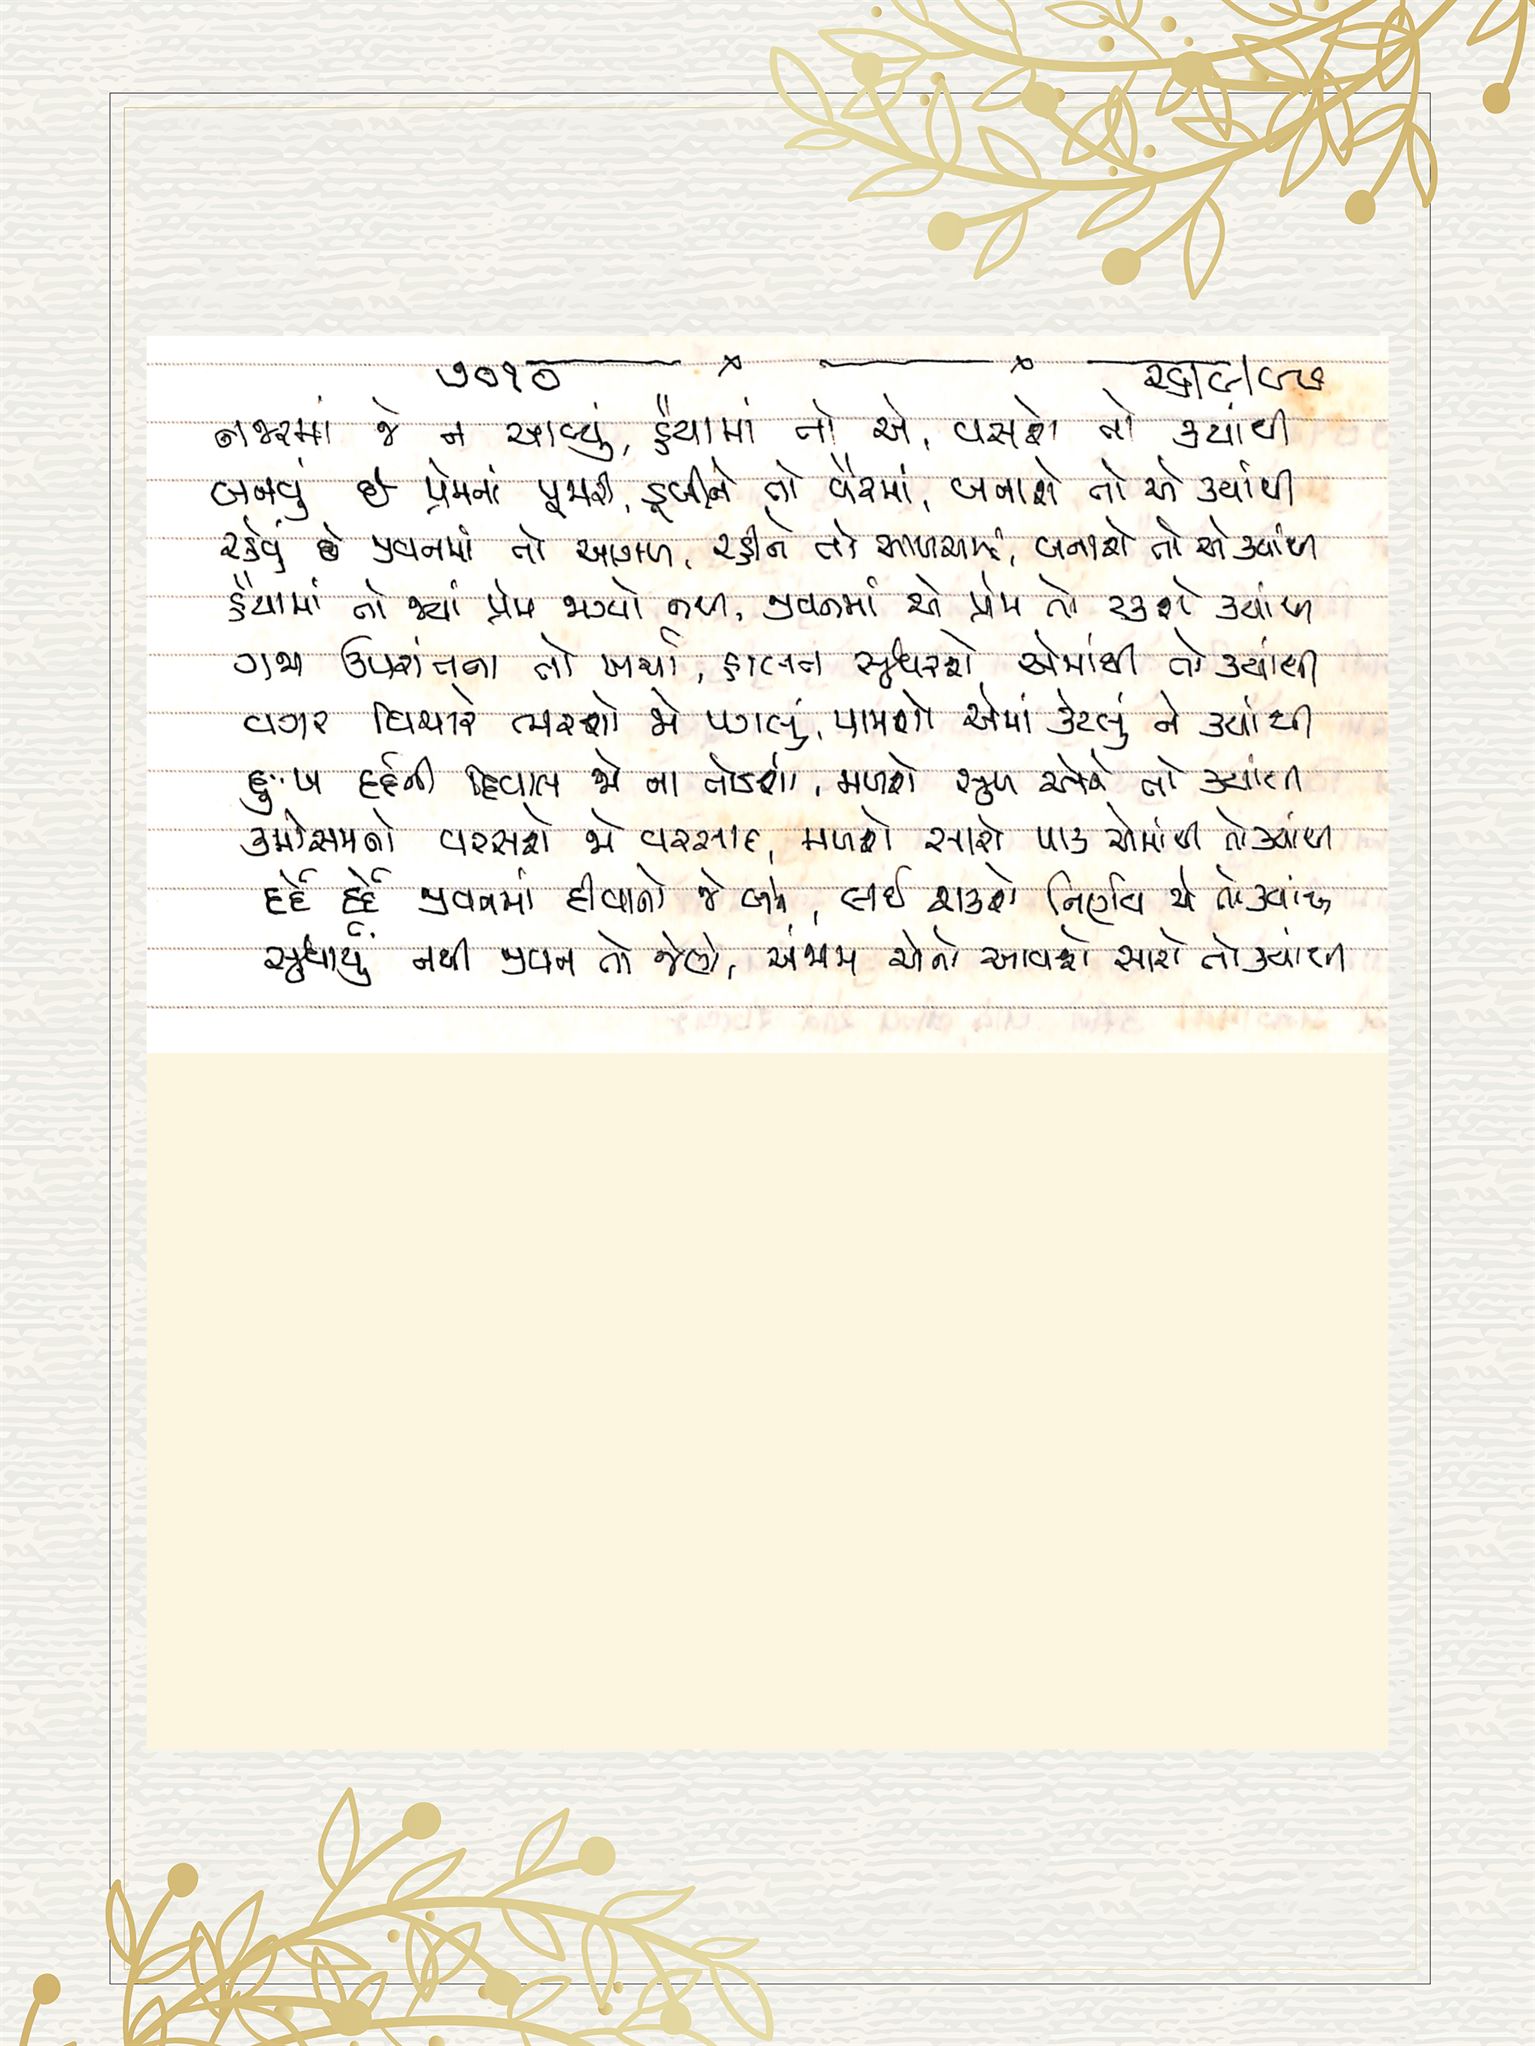 ૭૦૧૦
નજરમાં જે ન આવ્યું, હૈયામાં તો એ, વસશે તો ક્યાંથી
બનવું છે પ્રેમનાં પૂજારી, ડૂબીને તો વૈરમાં, બનાશે તો એ ક્યાંથી
રહેવું છે જીવનમાં તો આગળ, રહીને તો આળસમાં, બનાશે તો એ ક્યાંથી
હૈયામાં તો જ્યાં પ્રેમ જાગ્યો નથી, જીવનમાં એ પ્રેમ તો ટકશે ક્યાંથી
ગજા ઉપરાંતના તો ખર્ચા, હાલત સુધરશે એમાંથી તો ક્યાંથી
વગર વિચારે ભરશો જો પગલું, પામશો એમાં કેટલું ને ક્યાંથી
દુઃખ દર્દની દિવાલ જો ના તોડશો, મળશે સુખ તો ક્યાંથી
કમોસમનો વરસશે જો વરસાદ, મળશે સારો પાક એમાંથી તો ક્યાંથી
દર્દે દર્દે જીવનમાં દીવાનો જે બને, લઈ શકશે નિર્ણય એ તો ક્યાંથી
સુધાર્યું નથી જીવન તો જેણે, અંજામ એનો આવશે સારો તો ક્યાંથી